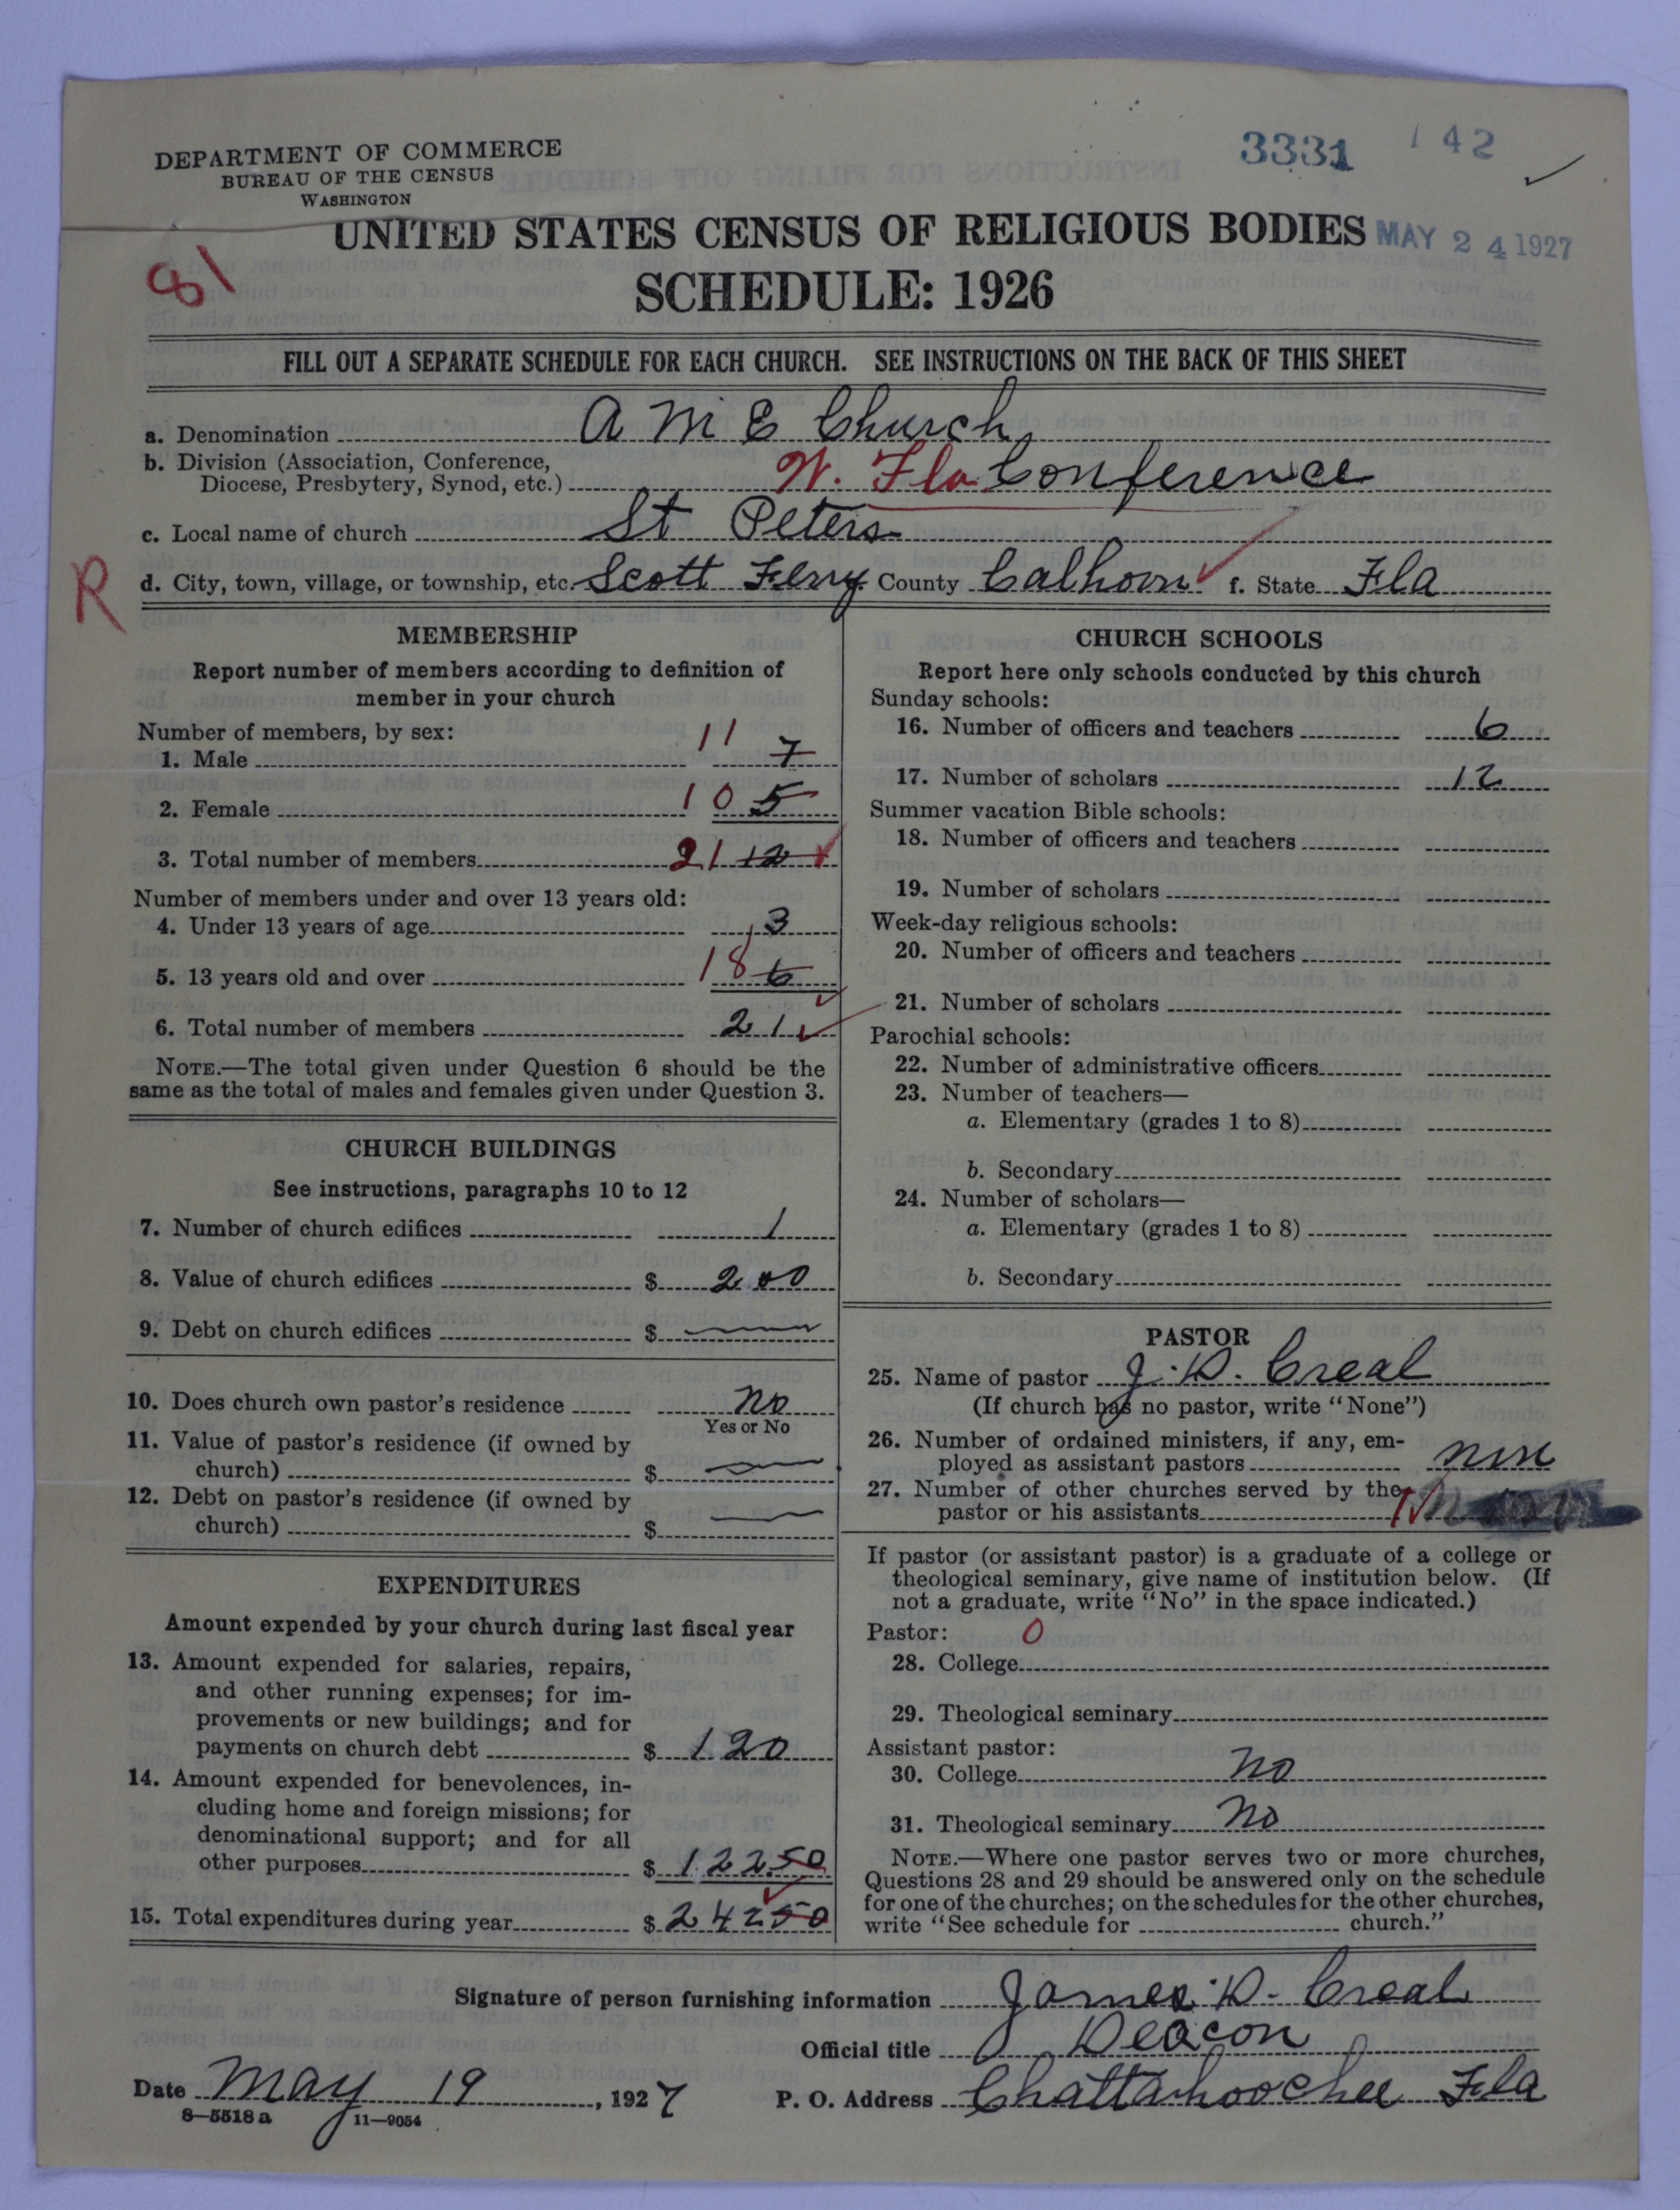 DEPARTMENT OF COMMERCE
BUREAU OF THE CENSUS
WASHINGTON
3331 142
UNITED STATES CENSUS OF RELIGIOUS BODIES MAY 24 1927
81
SCHEDULE: 1926
FILL OUT A SEPARATE SCHEDULE FOR EACH CHURCH. SEE INSTRUCTIONS ON THE BACK OF THIS SHEET
a. Denomination A M E Church
b. Division (Association, Conference,
Diocese, Presbytery, Synod, etc.) W. Fla Conference
c. Local name of church St Peters
R
d. City, town, village, or township, etc. Scott Ferry County Calhoun f. State Fla
MEMBERSHIP
Report number of members according to definition of
member in your church
Number of members, by sex:
1. Male 11 7
2. Female 10 5
3. Total number of members 21 12
Number of members under and over 13 years old:
4. Under 13 years of age 3
5. 13 years old and over 18 6
6. Total number of members 21
NOTE.—The total given under Question 6 should be the
same as the total of males and females given under Question 3.
CHURCH BUILDINGS
See instructions, paragraphs 10 to 12
7. Number of church edifices 1
8. Value of church edifices $ 200
9. Debt on church edifices $
10. Does church own pastor's residence No
Yes or No
11. Value of pastor's residence (if owned by
church) $
12. Debt on pastor's residence (if owned by
church) $
EXPENDITURES
Amount expended by your church during last fiscal year
13. Amount expended for salaries, repairs,
and other running expenses; for im-
provements or new buildings; and for
payments on church debt $ 120
14. Amount expended for benevolences, in-
cluding home and foreign missions; for
denominational support; and for all
other purposes $ 12250
15. Total expenditures during year $ 24250
CHURCH SCHOOLS
Report here only schools conducted by this church
Sunday schools:
16. Number of officers and teachers 6
17. Number of scholars 12
Summer vacation Bible schools:
18. Number of officers and teachers
19. Number of scholars
Week-day religious schools:
20. Number of officers and teachers
21. Number of scholars
Parochial schools:
22. Number of administrative officers
23. Number of teachers—
a. Elementary (grades 1 to 8)
b. Secondary
24. Number of scholars—
a. Elementary (grades 1 to 8)
b. Secondary
PASTOR
25. Name of pastor J. D. Creal
(If church has no pastor, write "None")
26. Number of ordained ministers, if any, em-
ployed as assistant pastors none
27. Number of other churches served by the
pastor or his assistants
If pastor (or assistant pastor) is a graduate of a college or
theological seminary, give name of institution below. (If
not a graduate, write "No" in the space indicated.)
Pastor: 0
28. College
29. Theological seminary
Assistant pastor:
30. College No
31. Theological seminary No
NOTE.—Where one pastor serves two or more churches,
Questions 28 and 29 should be answered only on the schedule
for one of the churches; on the schedules for the other churches,
write "See schedule for church."
Signature of person furnishing information James D. Creal
Official title Deacon
Date May 19, 1927 P. O. Address Chattahoochee Fla
8—5518 a 11—9054